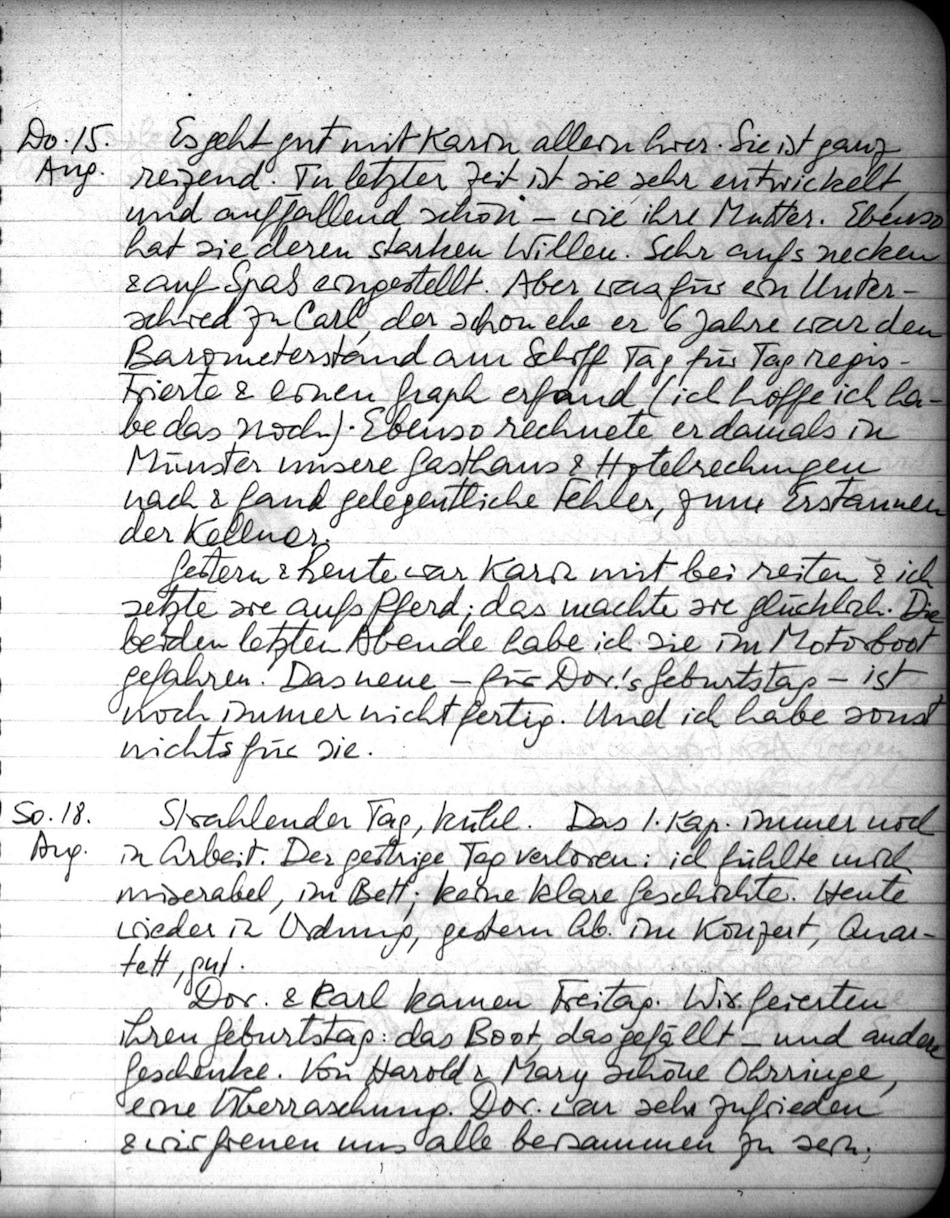 Do. 15. Es geht gut mit Karin allein hier. Sie ist ganz
Aug. reizend. In letzter Zeit ist sie sehr entwickelt
und auffallend schön – wie ihre Mutter. Ebenso
hat sie deren starken Willen. Sehr aufs necken
& auf Spaß eingestellt. Aber was für ein Unter-
schied zu Carl, der schon ehe er 6 Jahre war den
Barometerstand am Schiff Tag für Tag regis-
trierte & einen Graph erfand (ich hoffe ich ha-
be das noch). Ebenso rechnete er damals in
Münster unsere Gasthaus & Hotelrechnungen
nach & fand gelegentliche Fehler, zum Erstaunen
der Kellner.
Gestern & heute war Karin mit bei reiten & ich
setzte sie aufs Pferd; das machte sie glücklich. Die
beiden letzten Abende habe ich sie im Motorboot
gefahren. Das neue – für Dor.'s Geburtstag – ist
noch immer nicht fertig. Und ich habe sonst
nichts für sie.
So. 18. Strahlender Tag, kühl. Das 1. Kap. immer noch
Aug. in Arbeit. Der gestrige Tag verloren: ich fühlte mich
miserabel, im Bett; keine klare Geschichte. Heute
wieder in Ordnung, gestern Ab. im Konzert, Quar-
tett, gut.
Dor. & Karl kamen Freitag. Wir feierten
ihren Geburtstag: das Boot, das gefällt – und andere
Geschenke. Von Harold & Mary schöne Ohrringe,
eine Überraschung. Dor. war sehr zufrieden
& wir freuen uns alle beisammen zu sein;